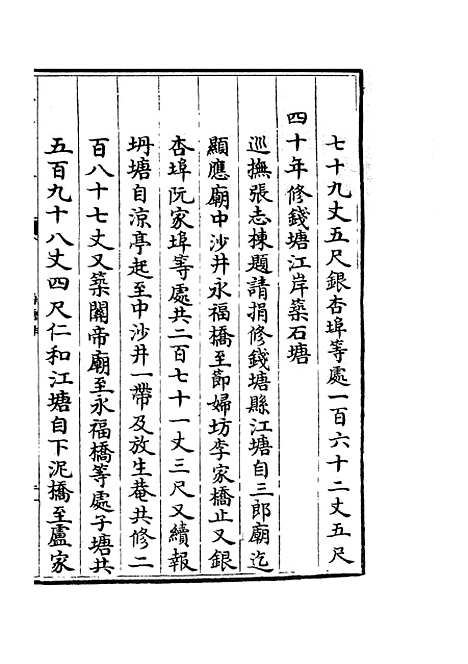 七十九丈五尺銀杏埠等處一百六十二丈五尺
四十年修錢塘江岸築石塘
巡撫張志棟題請捐修錢塘縣江塘自三郎廟迄
顯應廟中沙井永福橋至節婦坊李家橋止又銀
杏埠阮家埠等處共二百七十一丈三尺又續報
坍塘自涼亭起至中沙井一帶及放生菴共修二
百八十七丈又築關帝廟至永福橋等處子塘共
五百九十八丈四尺仁和江塘自下泥橋至盧家